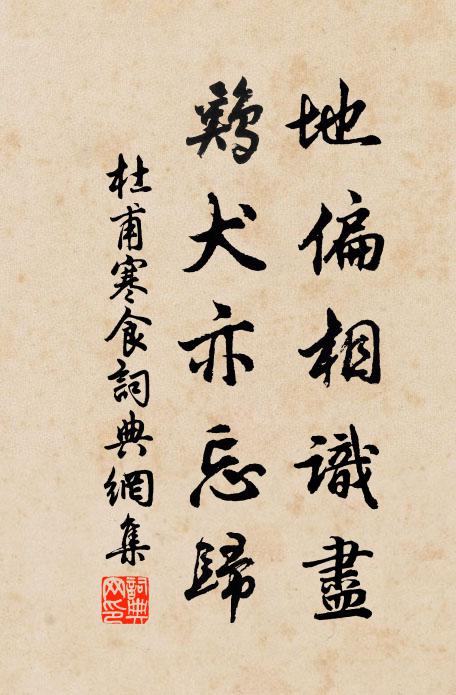 地偏相識盡
鷄犬亦忘歸
杜甫寒食詞典網集
詞典網印